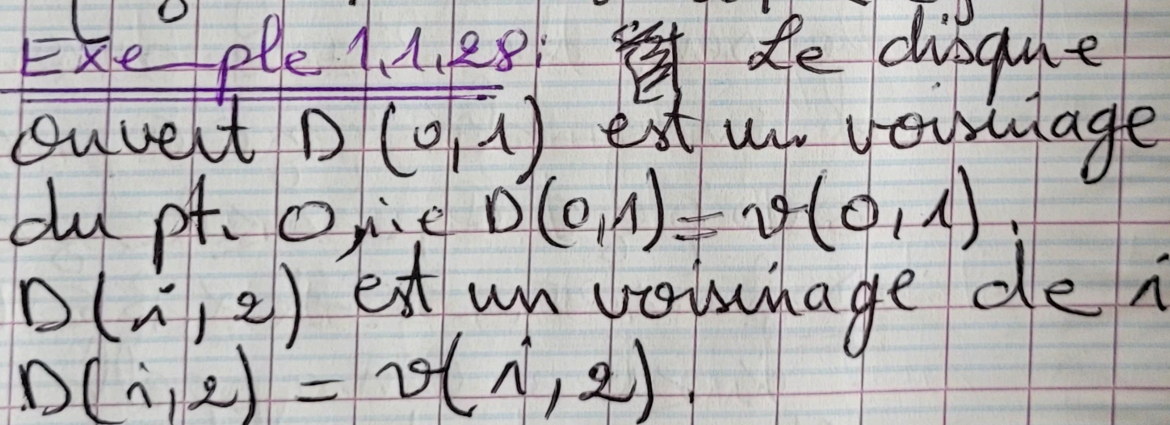 Exemple 1.1.28: Le disque
ouvert D(0,1) est un voisinage
du pt. 0, i.e D(0,1) = v(0,1).
D(i,2) est un voisinage de i
D(i,2) = v(i,2).